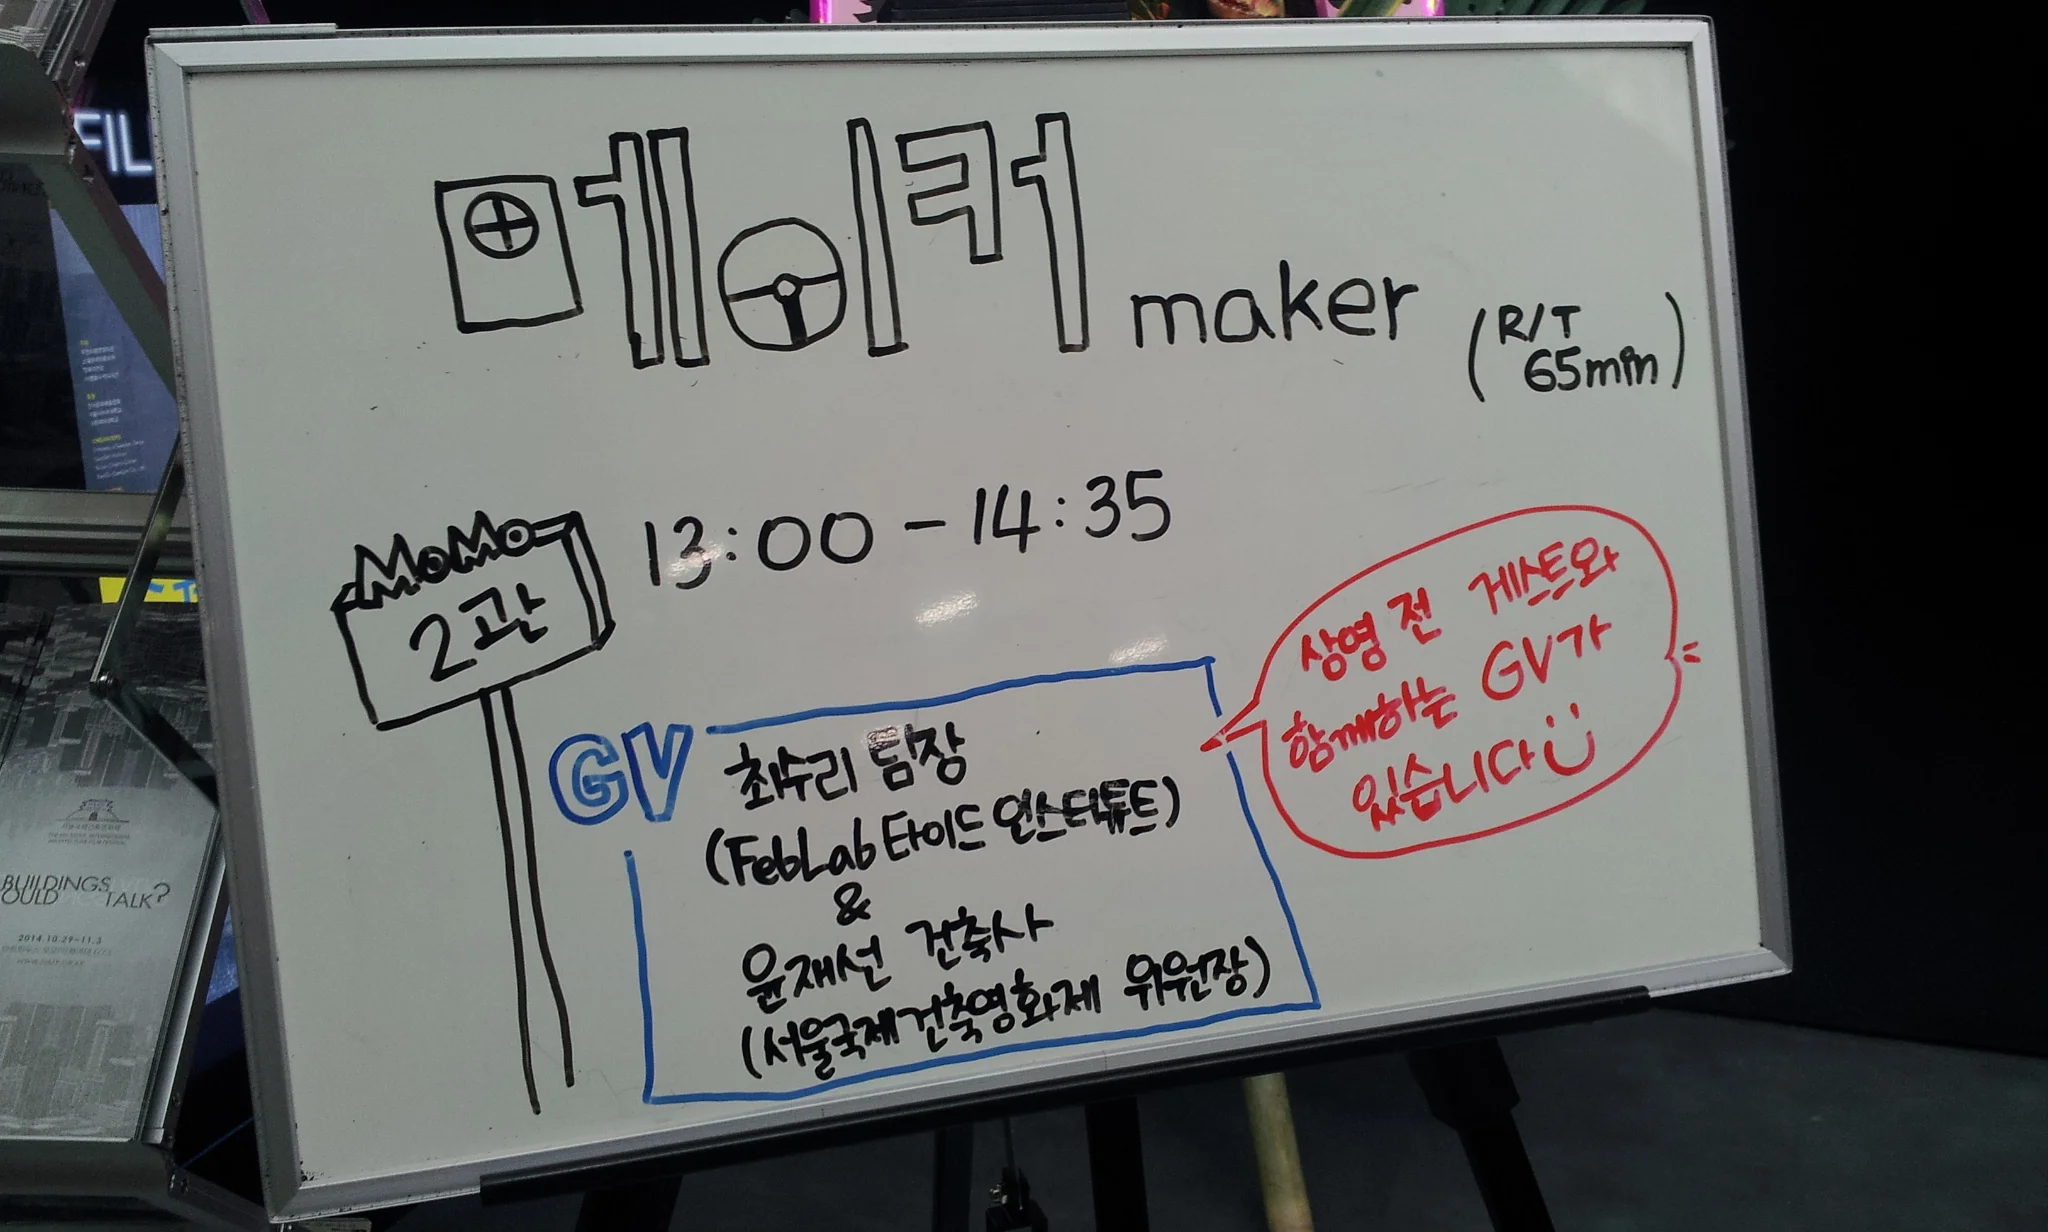 FIL
메이커
maker
(R/T
65min)
MoMo
2관
13:00 - 14:35
상영 전 게스트와
함께하는 GV가
있습니다
GV
최수리 팀장
(FebLab 타이드 인스티튜트)
&
윤재선 건축사
(서울국제건축영화제 위원장)
BUILDINGS
OULD TALK?
2014.10.29-11.3